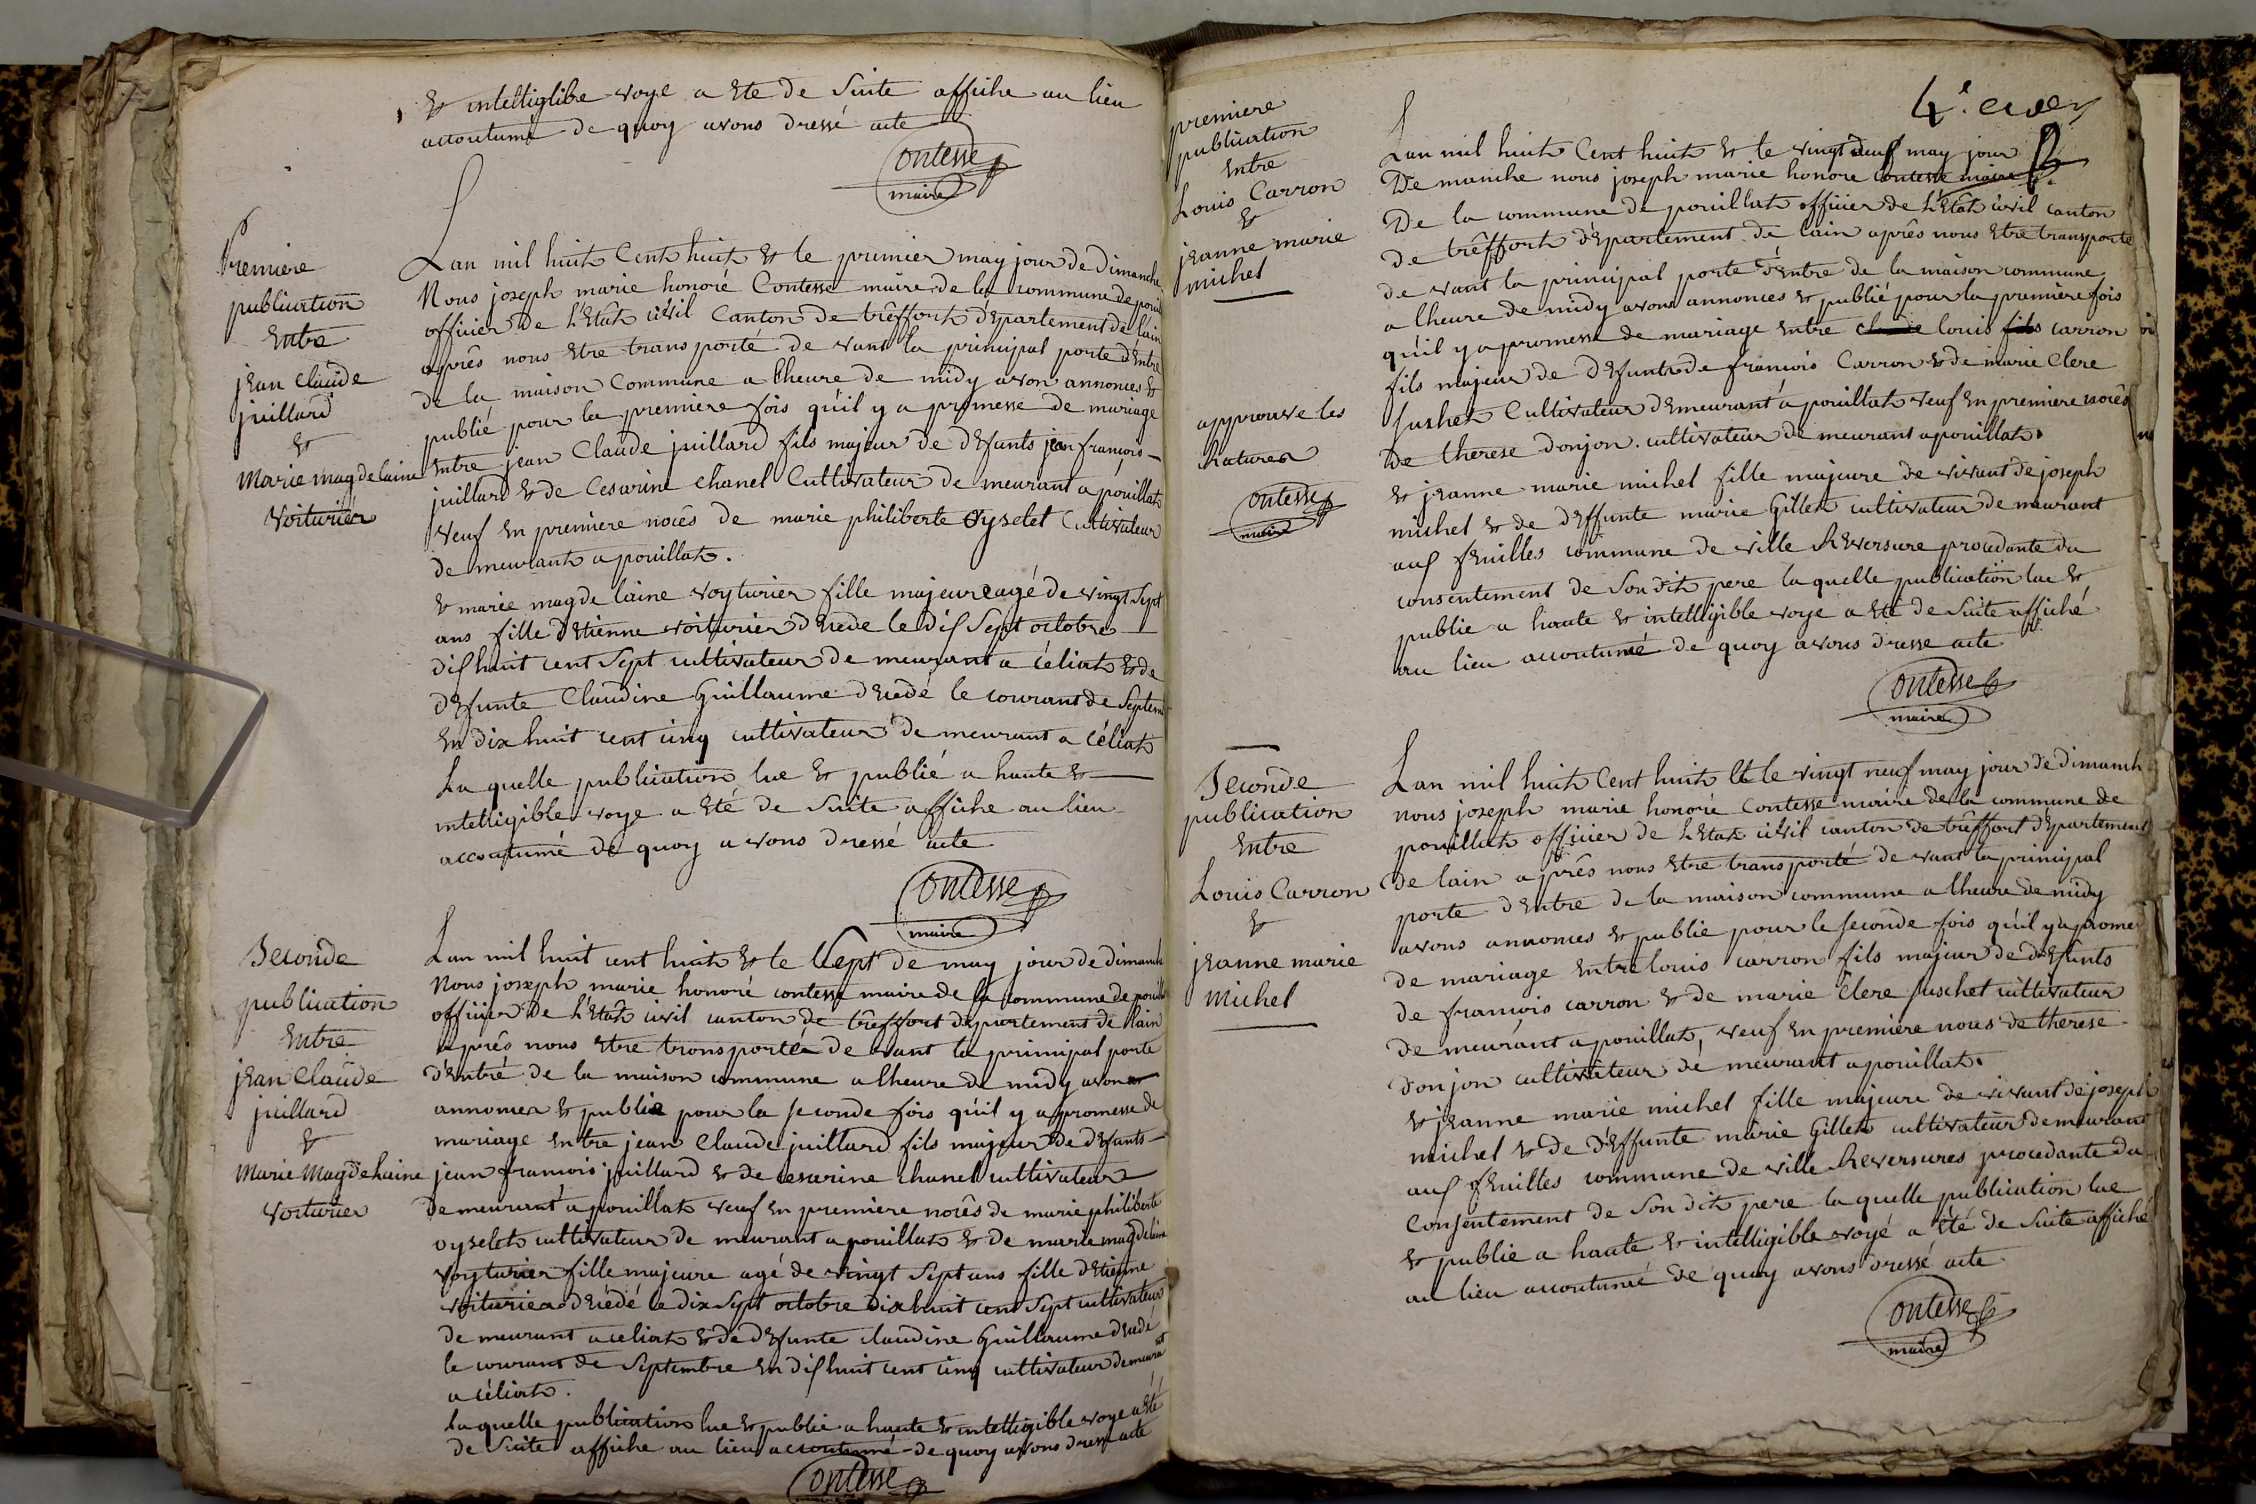 & intelligible voye a Ete de Suite affiche au lieu
accoutumé de quoy avons dressé acte
Contesse
maire
Premiere
publication
Entre
jean Claude
juillard
&
Marie magdelaine
Voiturier
Lan mil huit Cent huit & le premier may jour de Dimanche
Nous joseph marie honoré Contesse maire de la commune de pouil
officier de L'Etat civil Canton de trêffort département de lain
après nous Etre transporté de vant la principal porte d'Entre
de la maison Commune a lheure de midy avon annonces &
publié pour la premiere fois qu'il y a promesse de mariage
Entre jean Claude juillard fils majeur de defunts jean françois
juillard & de Cesarine chanel Cultivateur de meurant a pouillat
veuf En premiere nocês de marie philiberte Oyselet Cultivateur
de meurant a pouillat.
& marie magde laine voyturier fille majeure agé de vingt Sept
ans fille d'Etienne voiturier décédé le dis Sept octobre
dishuit cent Sept cultivateur de meurant a céliat & de
défunte Claudine Guillaume decedé le courant de Septem
En dix huit cent cinq cultivateur de meurant a Céliat
La quelle publication lue & publié a haute &
intelligible voye a Eté de Suite affiche au lieu
accoutumé de quoy a vons dressé acte
Contesse
maire
Seconde
publication
Entre
jean Claude
juillard
&
Marie Magdelaine
Voiturier
Lan mil huit cent huit & le Sept de may jour de dimanch
Nous joseph marie honoré contesse maire de la commune de pouilla
officier de L'Etat civil canton de trêffort département de lain
après nous Etre transporté de vant la principal porte
d'Entré de la maison commune a lheure de midy avons
annonces & publié pour la seconde fois qu'il y a promesse de
mariage entre jean Claude juillard fils majeur de défunts
jean francois juillard & de cesarine chanel cultivateur
de meurant a pouillat veuf En premiere nocês de marie philiberte
oyselet cultivateur de meurant a pouillat & de marie magdelaine
voyturier fille majeure agé de vingt Sept ans fille d'Etienne
voiturier décédé le dix Sept octobre dix huit cent Sept cultivateur
de meurant a celiat & de défunte claudine Guillaume decedé
le courant de Septembre En dishuit cent cinq cultivateur demeurant
a céliat.
La quelle publication lue & publié a haute & intelligible voye a Eté
de Suite affiche au lieu accoutumé de quoy avons dressé acte
Contesse
premiere
publication
Entre
Louis Carron
&
jeanne marie
michel
approuve les
Ratures
Contesse
maire
Lan mil huit Cent huit & le vingt deux may jour
De manche nous joseph marie honoré Contesse maire
De la commune de pouillat officier de L'Etat civil canton
de trêffort département de lain après nous Etre transporte
de vant la principal porte d'Entre de la maison commune
a lheure de midy avons annonces & publié pour la premiere fois
qu'il y a promesse de mariage Entre claude louis fils carron
fils majeur de défunts de francois Carron & de marie Clere
fushet Cultivateur demeurant a pouillat veuf En premiere nocês
de therese donjon cultivateur de meurant a pouillat.
& jeanne marie michel fille majeure de vivant de joseph
michel & de deffunte marie Gillet cultivateur de meurant
aux feuilles commune de ville Reversure procedante du
consentement de Son dit pere la quelle publication lue &
publie a haute & intelligible voye a Eté de Suite affiché
au lieu accoutumé de quoy avons dresse acte
Contesse
maire
Seconde
publication
Entre
Louis Carron
&
jeanne marie
Michel
Lan mil huit Cent huit & le vingt neuf may jour de dimanch
nous joseph marie honoré Contesse maire de la commune de
pouillat officier de L'Etat civil canton de trêffort département
de lain après nous Etre transporté de vant la principal
porte d'Entre de la maison commune a lheure de midy
avons annonces & publie pour le seconde fois qu'il y a promes
de mariage Entre louis carron fils majeur de défunts
de francois carron & de marie Clere fuschet cultivateur
de meurant a pouillat, veuf En premiere noces de therese
donjon cultivateur de meurant a pouillat.
& jeanne marie michel fille majeure de vivant de joseph
michel & de deffunte marie Gillet cultivateur demeurant
aux feuilles commune de ville Reversures procedante du
Consentement de Son dit pere la quelle publication lue
& publie a haute & intelligible voye a Eté de Suite affiché
au lieu accoutumé de quoy avons dressé acte
Contesse
maire